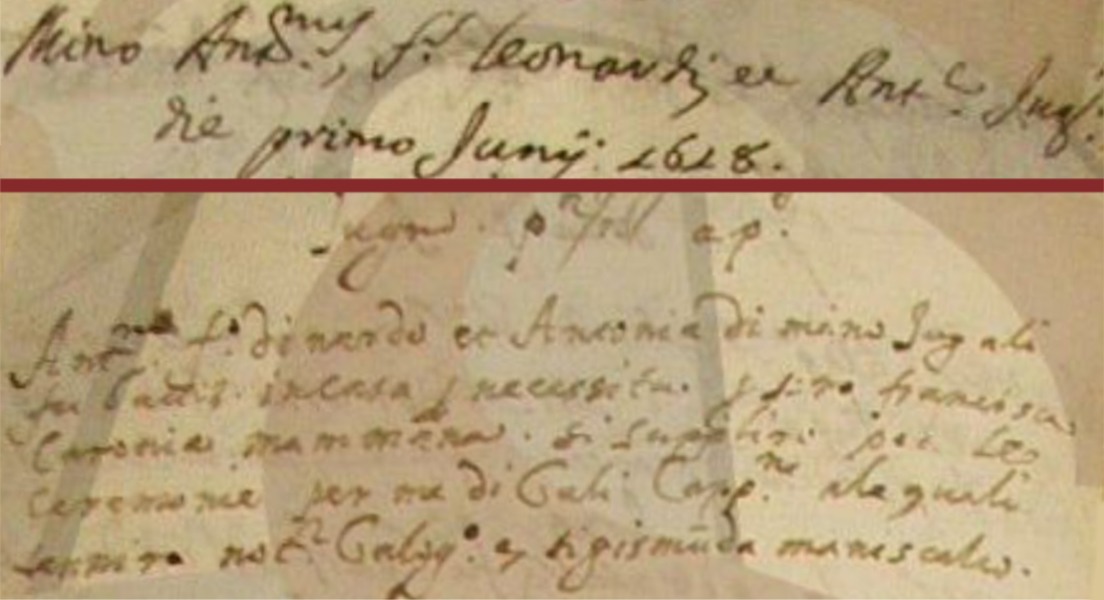 Mino Ant.nus, f.s Leonardi et Ant.ae Jug:
die primo Junij: 1618.
ap.o
Ant.no f.o di nardo et Antonia di mino Jugali
fu battis. in casa p necessita. p francisca
Caronia mammana. si suppliro poi le
ceremonie per me di Cali Capp.no ale quali
not.r Calog.o et sigismūda maniscalco.